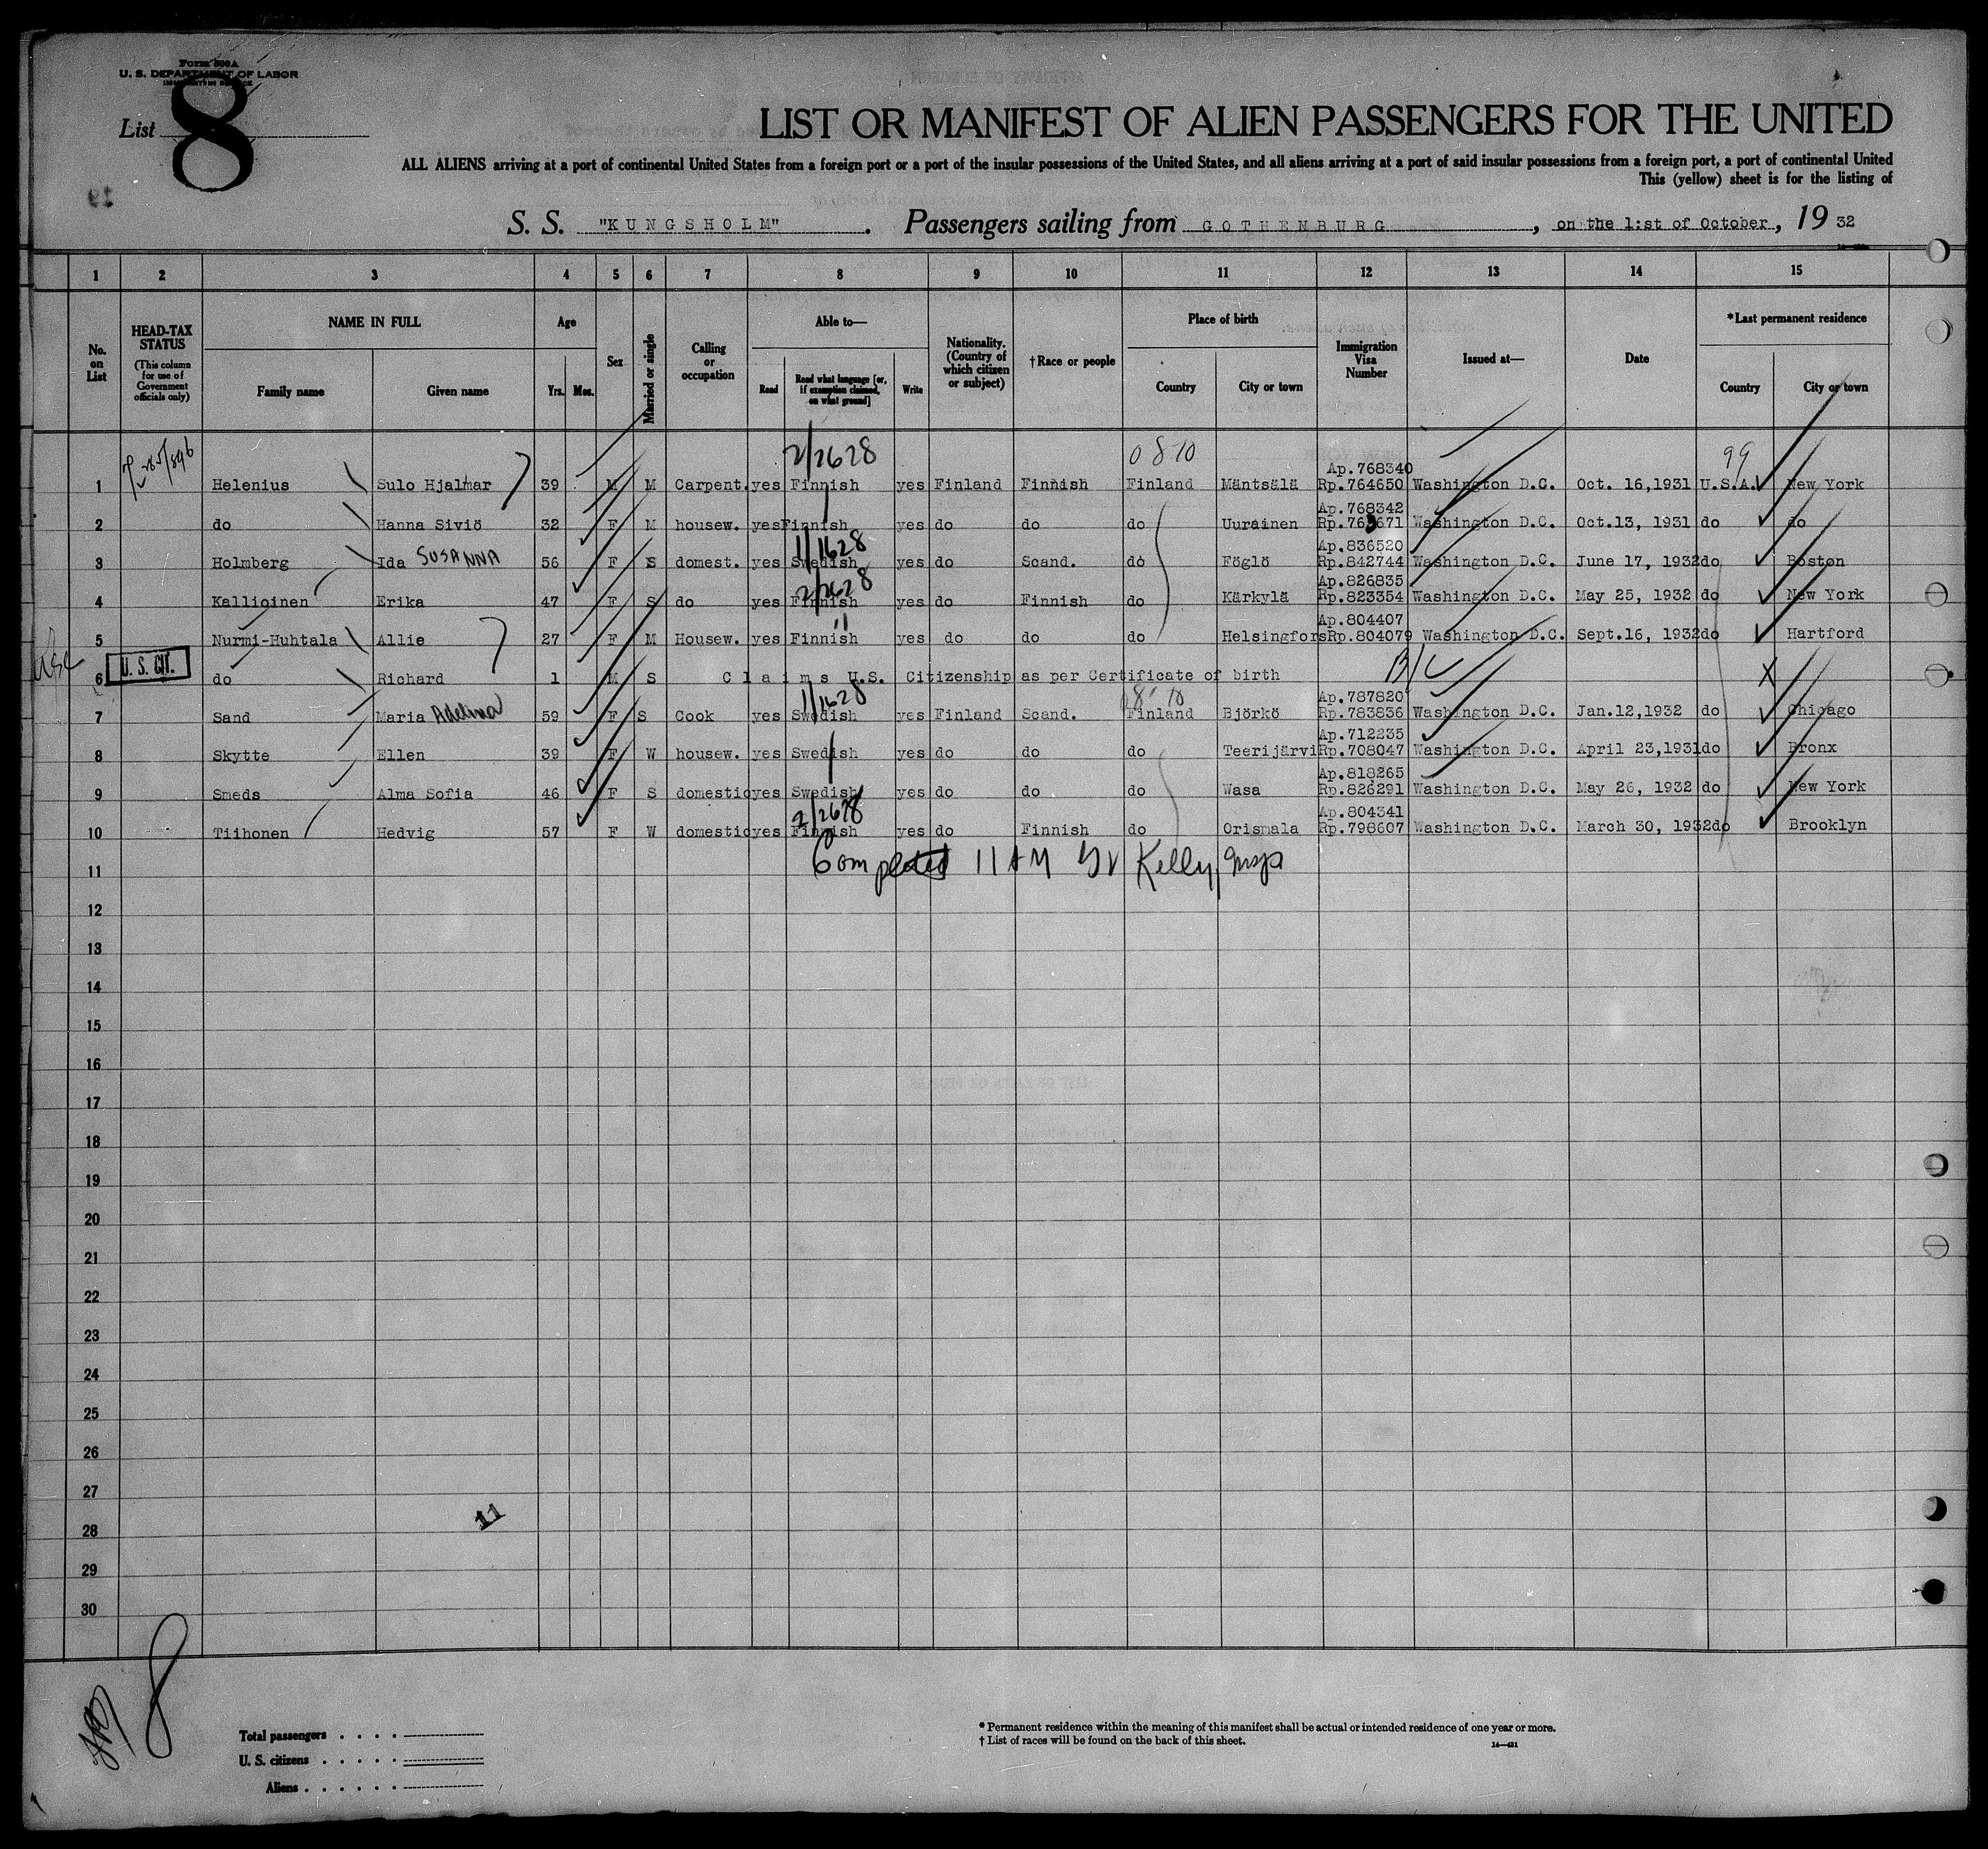 Form 500A
U. S. DEPARTMENT OF LABOR
List 8
LIST OR MANIFEST OF ALIEN PASSENGERS FOR THE UNITED
ALL ALIENS arriving at a port of continental United States from a foreign port or a port of the insular possessions of the United States, and all aliens arriving at a port of said insular possessions from a foreign port, a port of continental United
This (yellow) sheet is for the listing of
S. S. "KUNGSHOLM" . Passengers sailing from GOTHENBURG , on the 1:st of October, 19 32
1 2 3 4 5 6 7 8 9 10 11 12 13 14 15
No. on List
HEAD-TAX STATUS (This column for use of Government officials only)
NAME IN FULL Family name Given name
Age Yrs. Mos.
Sex
Married or single
Calling or occupation
Able to— Read Read what language [or, if exemption claimed, on what ground] Write
Nationality. (Country of which citizen or subject)
† Race or people
Place of birth Country City or town
Immigration Visa Number
Issued at—
Date
*Last permanent residence Country City or town
2/2628 0870 99
Ap.768340
1 Helenius Sulo Hjalmar 39 M M Carpent. yes Finnish yes Finland Finnish Finland Mäntsälä Rp.764650 Washington D.C. Oct. 16,1931 U.S.A. New York
Ap.768342
2 do Hanna Siviö 32 F M housew. yes Finnish yes do do do Uurainen Washington D.C. Oct.13, 1931 do do
1/1628 Ap.836520
3 Holmberg Ida SUSANNA 56 F S domest. yes Swedish yes do Scand. do Föglö Rp.842744 Washington D.C. June 17, 1932 do Boston
2/2628 Ap.826835
4 Kallioinen Erika 47 F S do yes Finnish yes do Finnish do Kärkylä Rp.823354 Washington D.C. May 25, 1932 do New York
" Ap.804407
5 Nurmi-Huhtala Allie 27 F M Housew. yes Finnish yes do do do Helsingfors Rp.804079 Washington D.C. Sept.16, 1932 do Hartford
USC U. S. CIT. B/C X
6 do Richard 1 M S Claims U.S. Citizenship as per Certificate of birth
1/1628 08 10 Ap.787820
7 Sand Maria Adelina 59 F S Cook yes Swedish yes Finland Scand. Finland Björkö Rp.783836 Washington D.C. Jan.12,1932 do Chicago
Ap.712235
8 Skytte Ellen 39 F W housew. yes Swedish yes do do do Teerijärvi Rp.708047 Washington D.C. April 23,1931 do Bronx
Ap.818265
9 Smeds Alma Sofia 46 F S domestic yes Swedish yes do do do Wasa Rp.826291 Washington D.C. May 26, 1932 do New York
2/2628 Ap.804341
10 Tiihonen Hedvig 57 F W domestic yes Finnish yes do Finnish do Orismala Rp.798607 Washington D.C. March 30, 1932 do Brooklyn
11 Completed 11 AM Kelly, Insp
12
13
14
15
16
17
18
19
20
21
22
23
24
25
26
27
28
11
29
30
8
Total passengers
U. S. citizens
Aliens
* Permanent residence within the meaning of this manifest shall be actual or intended residence of one year or more.
† List of races will be found on the back of this sheet.
14—421